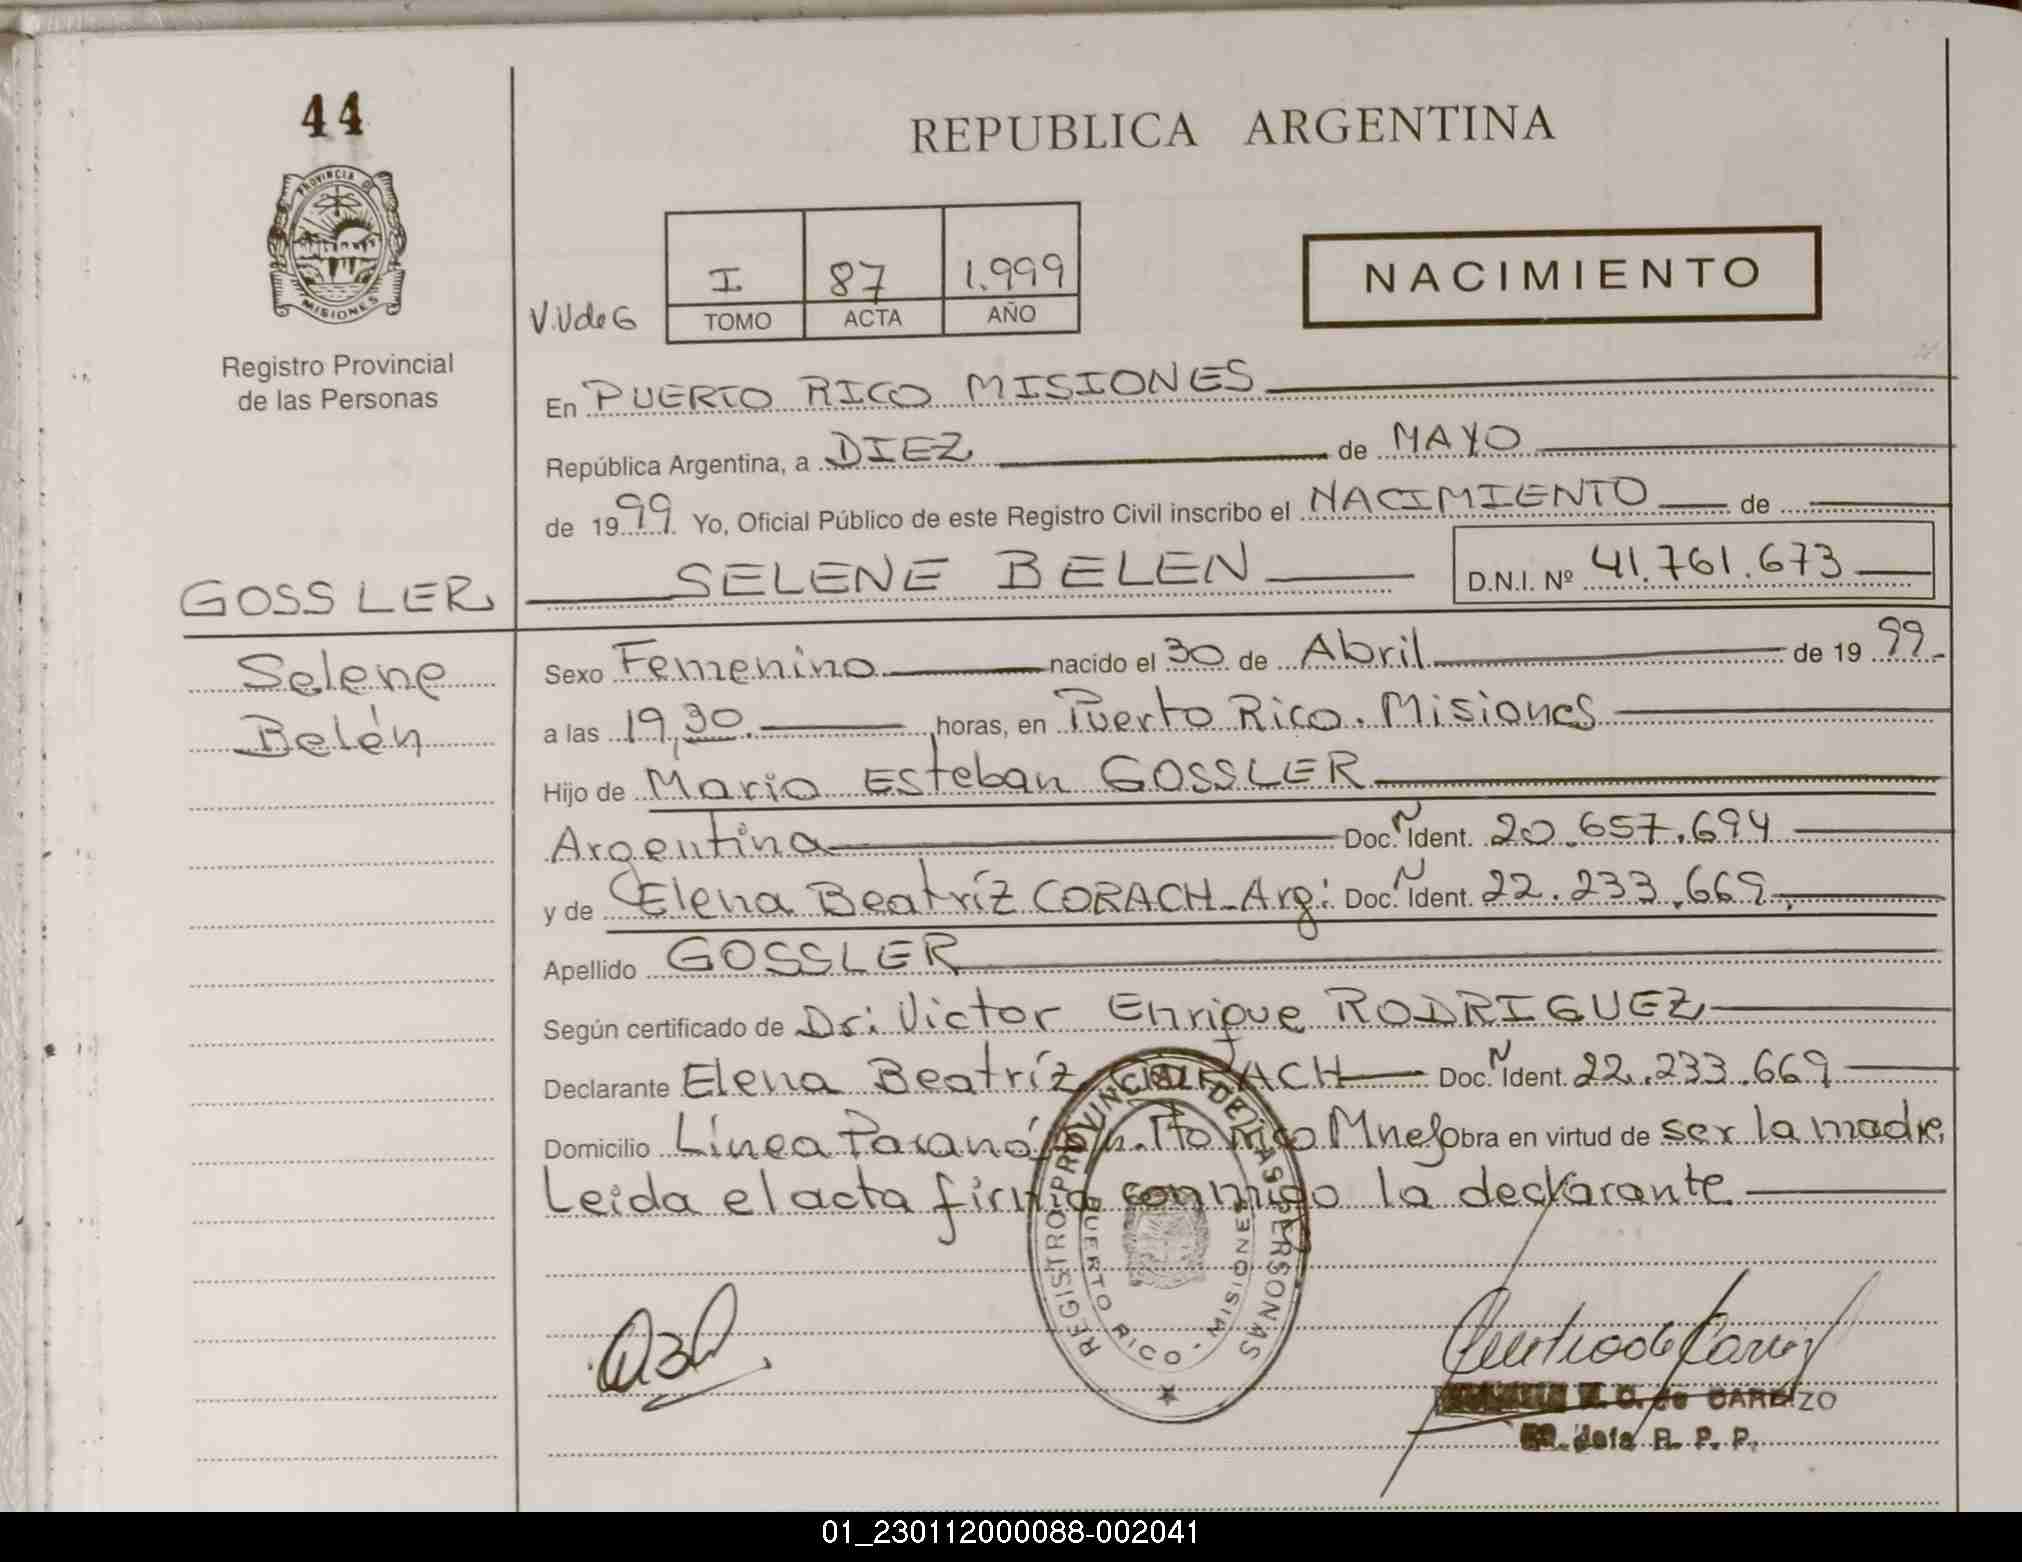 44
REPUBLICA ARGENTINA
PROVINCIA DE
MISIONES
Registro Provincial
de las Personas
V.V de G
I 87 1.999
TOMO ACTA AÑO
NACIMIENTO
En PUERTO RICO MISIONES
República Argentina, a DIEZ de MAYO
de 1999. Yo, Oficial Público de este Registro Civil inscribo el NACIMIENTO de
GOSSLER SELENE BELEN D.N.I. Nº 41.761.673
Selene
Belén
Sexo Femenino nacido el 30 de Abril de 1999.
a las 19,30. horas, en Puerto Rico. Misiones
Hijo de Mario Esteban GOSSLER
Argentina Doc. Ñ Ident. 20.657.694
y de Elena Beatríz CORACH - Arg: Doc. Ñ Ident. 22.233.669.
Apellido GOSSLER
Según certificado de Dr: Victor Enrique RODRIGUEZ
Declarante Elena Beatríz CORACH Doc. Ñ Ident. 22.233.669
Domicilio Línea Paraná Rico Mnes obra en virtud de ser la madre,
Leida el acta firma conmigo la declarante
REGISTRO PROVINCIAL DE LAS PERSONAS
PUERTO RICO - MISIONES
de CARDOZO
Jefa R. P. P.
01_230112000088-002041